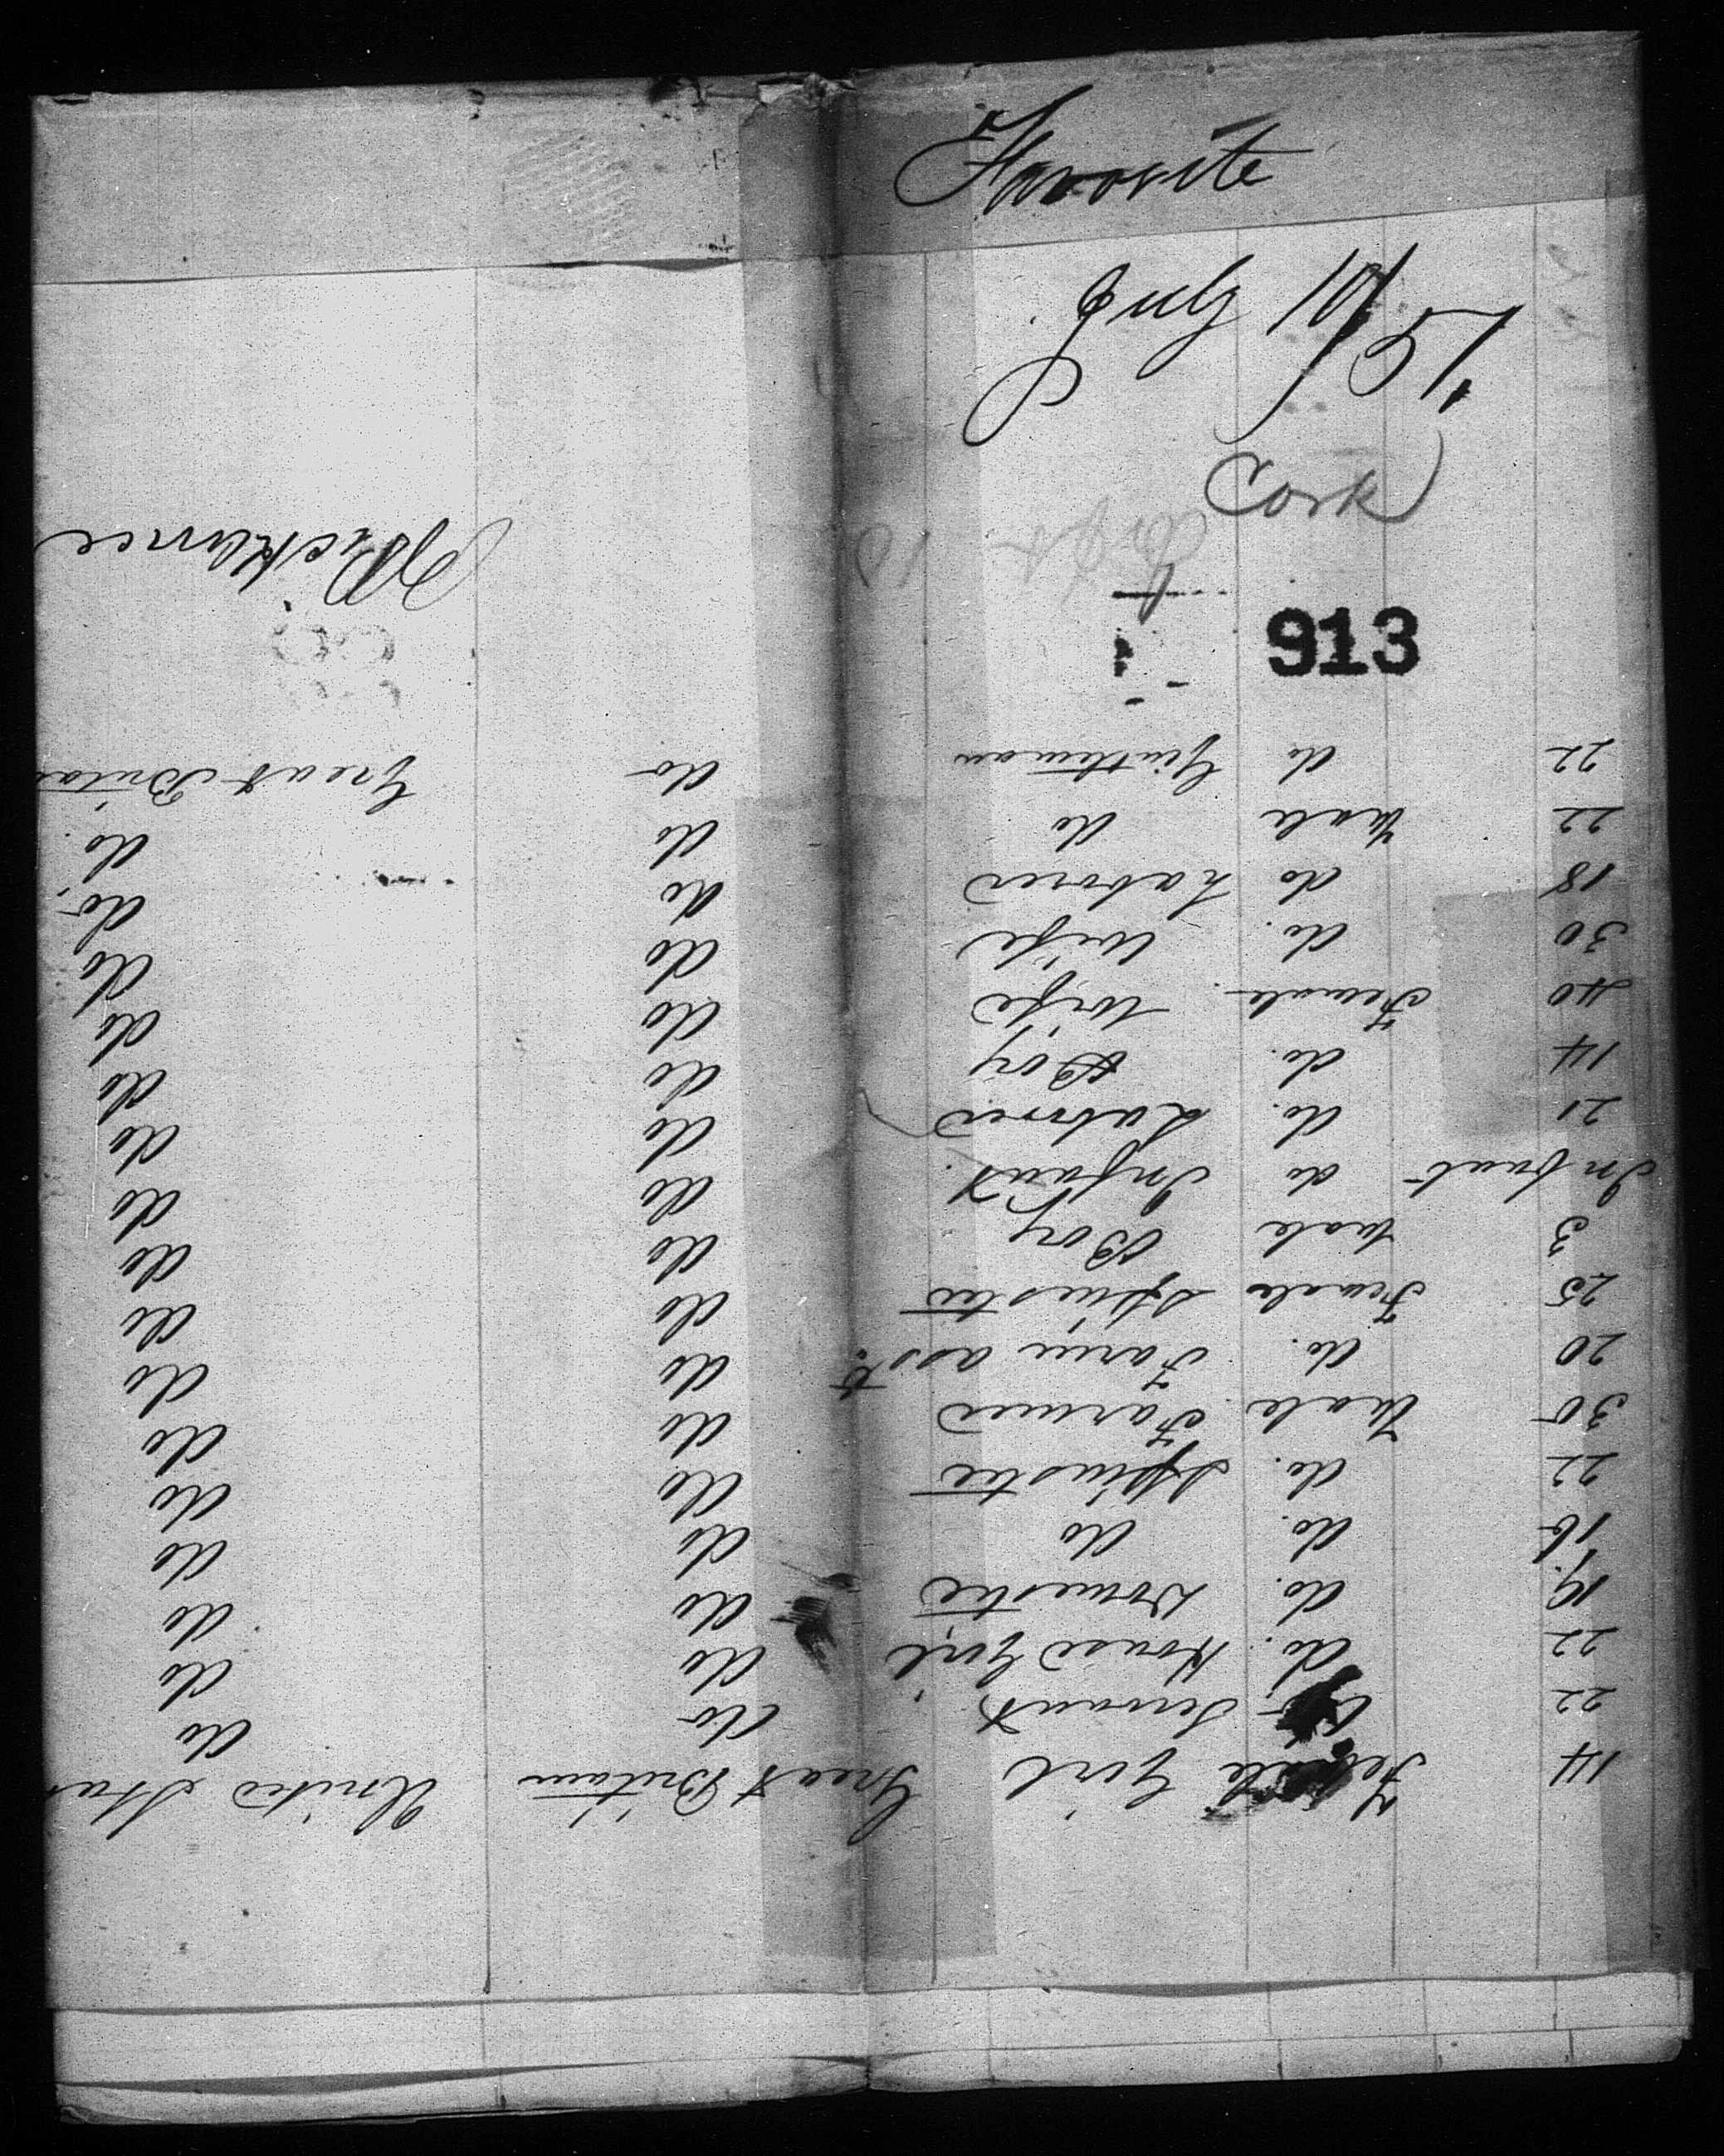 Favorite
July
Cork
913
14 Female Girl Great Britain United Sta
22 Servant do do
22 do. House Girl do do
19. do. Domestic do do
16 do. do do do
22 do. Spinster do do
30 Male Farmer do do
20 do. Farm asst. do do
25 Female Spinster do do
3 Male Boy do do
Infant do Infant. do do
21 do. Laborer do do
14 do. Boy do do
40 Female Wife do do
30 do. Wife do do
18 do Laborer do do
22 Male do do do.
22 do Gentleman do Great Britai